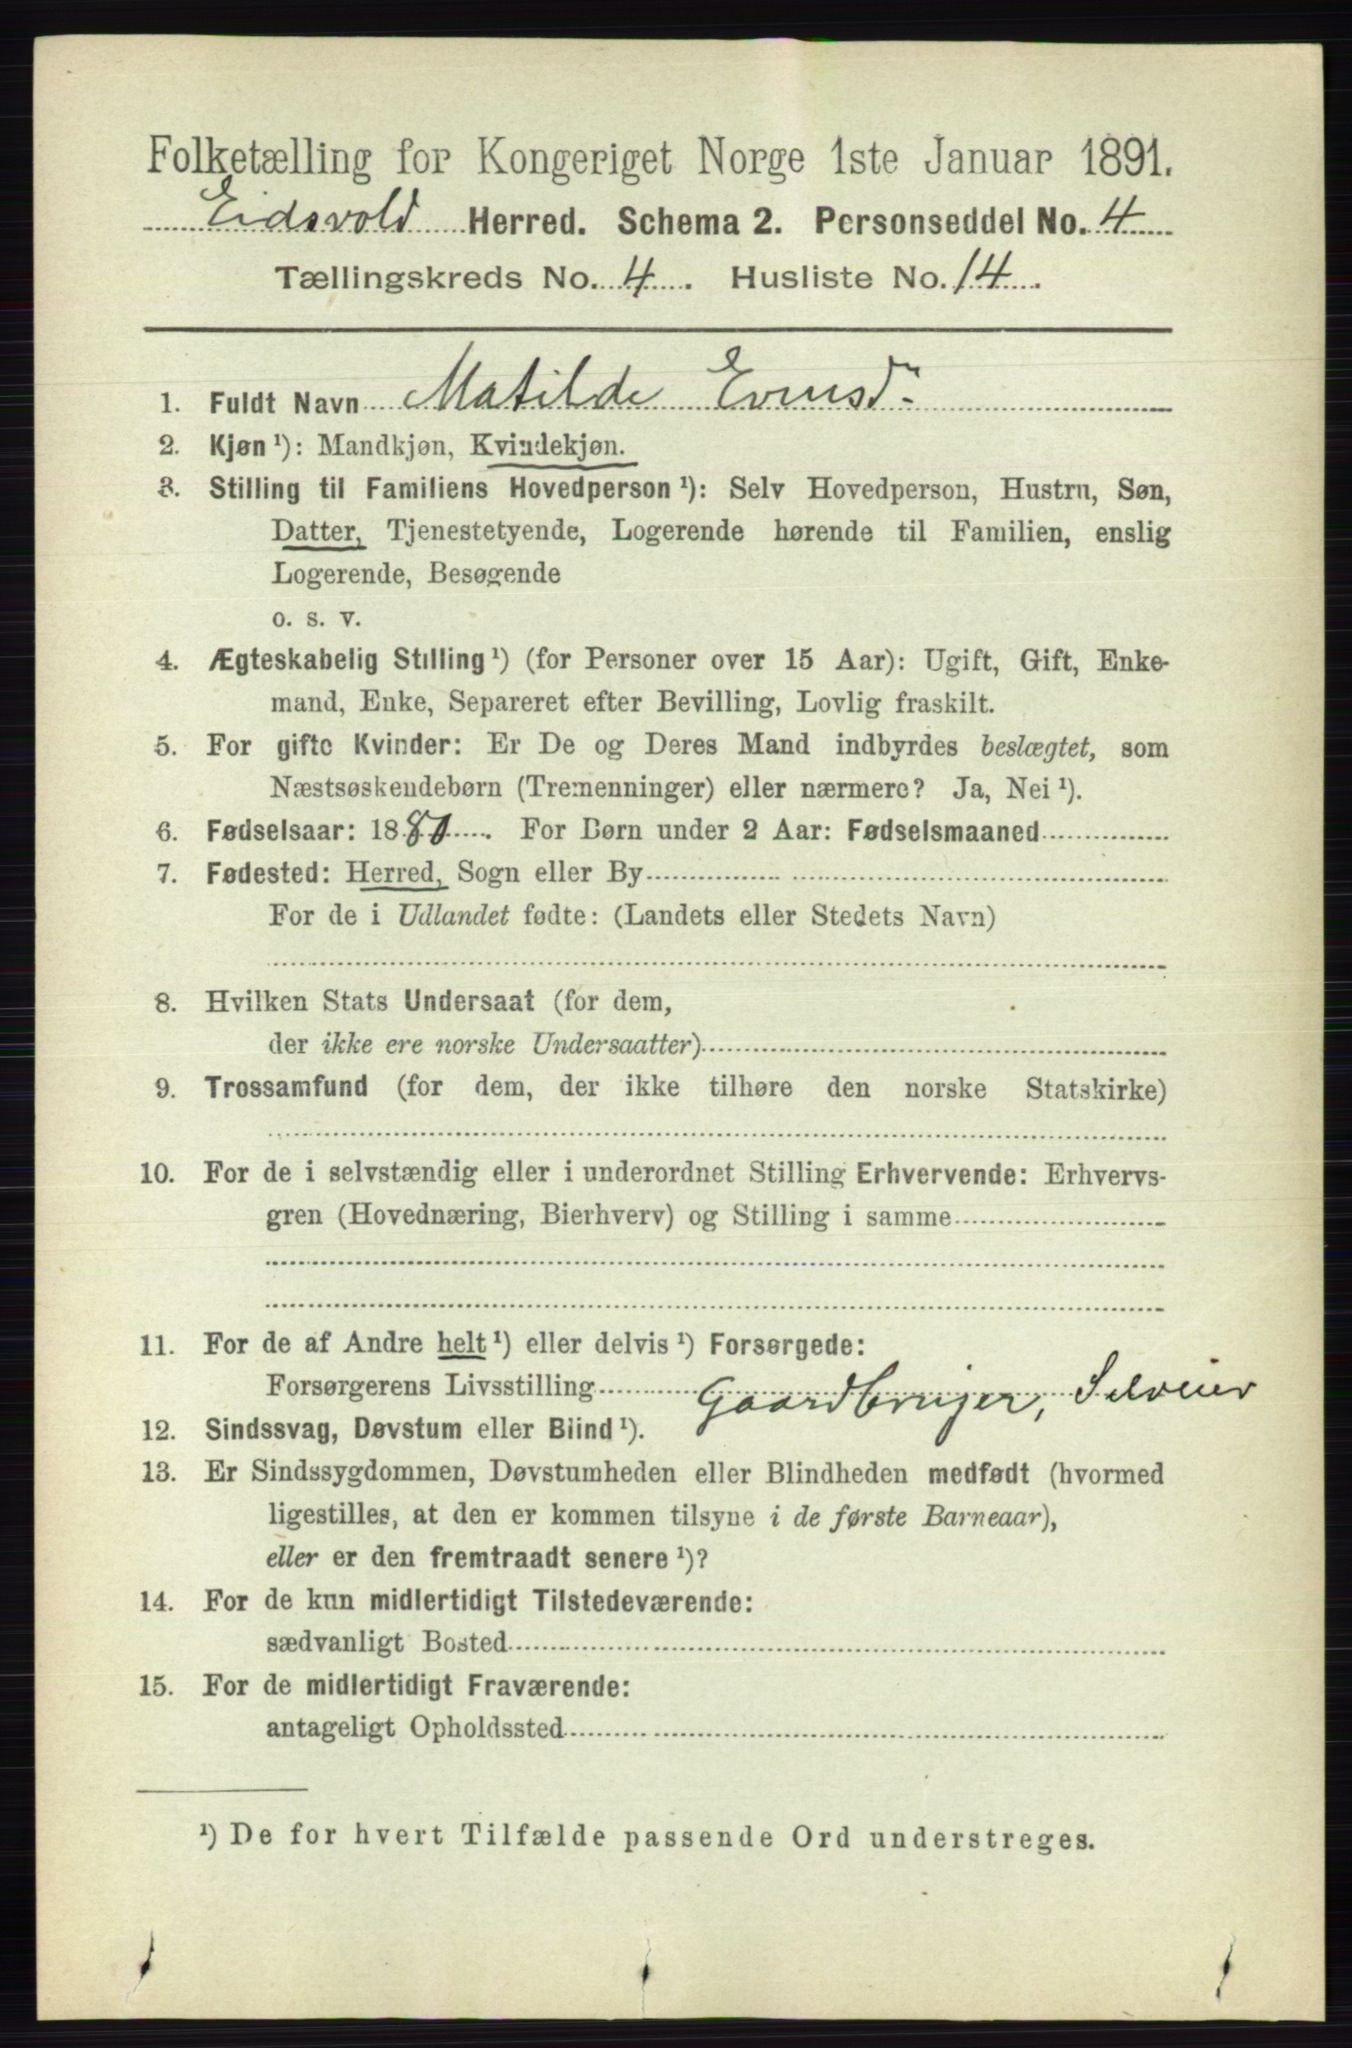 Folketælling for Kongeriget Norge 1ste Januar 1891.
Eidsvold Herred. Schema 2. Personseddel No. 4
Tællingskreds No. 4. Husliste No. 14.
1. Fuldt Navn Matilde Evensd.
2. Kjøn¹): Mandkjøn, Kvindekjøn.
3. Stilling til Familiens Hovedperson¹): Selv Hovedperson, Hustru, Søn,
Datter, Tjenestetyende, Logerende hørende til Familien, enslig
Logerende, Besøgende
o. s. v.
4. Ægteskabelig Stilling¹) (for Personer over 15 Aar): Ugift, Gift, Enke-
mand, Enke, Separeret efter Bevilling, Lovlig fraskilt.
5. For gifte Kvinder: Er De og Deres Mand indbyrdes beslægtet, som
Næstsøskendebørn (Tremenninger) eller nærmere? Ja, Nei¹).
6. Fødselsaar: 1880. For Børn under 2 Aar: Fødselsmaaned
7. Fødested: Herred, Sogn eller By
For de i Udlandet fødte: (Landets eller Stedets Navn)
8. Hvilken Stats Undersaat (for dem,
der ikke ere norske Undersaatter)
9. Trossamfund (for dem, der ikke tilhøre den norske Statskirke)
10. For de i selvstændig eller i underordnet Stilling Erhvervende: Erhvervs-
gren (Hovednæring, Bierhverv) og Stilling i samme
11. For de af Andre helt¹) eller delvis¹) Forsørgede:
Forsørgerens Livsstilling Gaardbruger, Selveier
12. Sindssvag, Døvstum eller Blind¹).
13. Er Sindssygdommen, Døvstumheden eller Blindheden medfødt (hvormed
ligestilles, at den er kommen tilsyne i de første Barneaar),
eller er den fremtraadt senere¹)?
14. For de kun midlertidigt Tilstedeværende:
sædvanligt Bosted
15. For de midlertidigt Fraværende:
antageligt Opholdssted
¹) De for hvert Tilfælde passende Ord understreges.